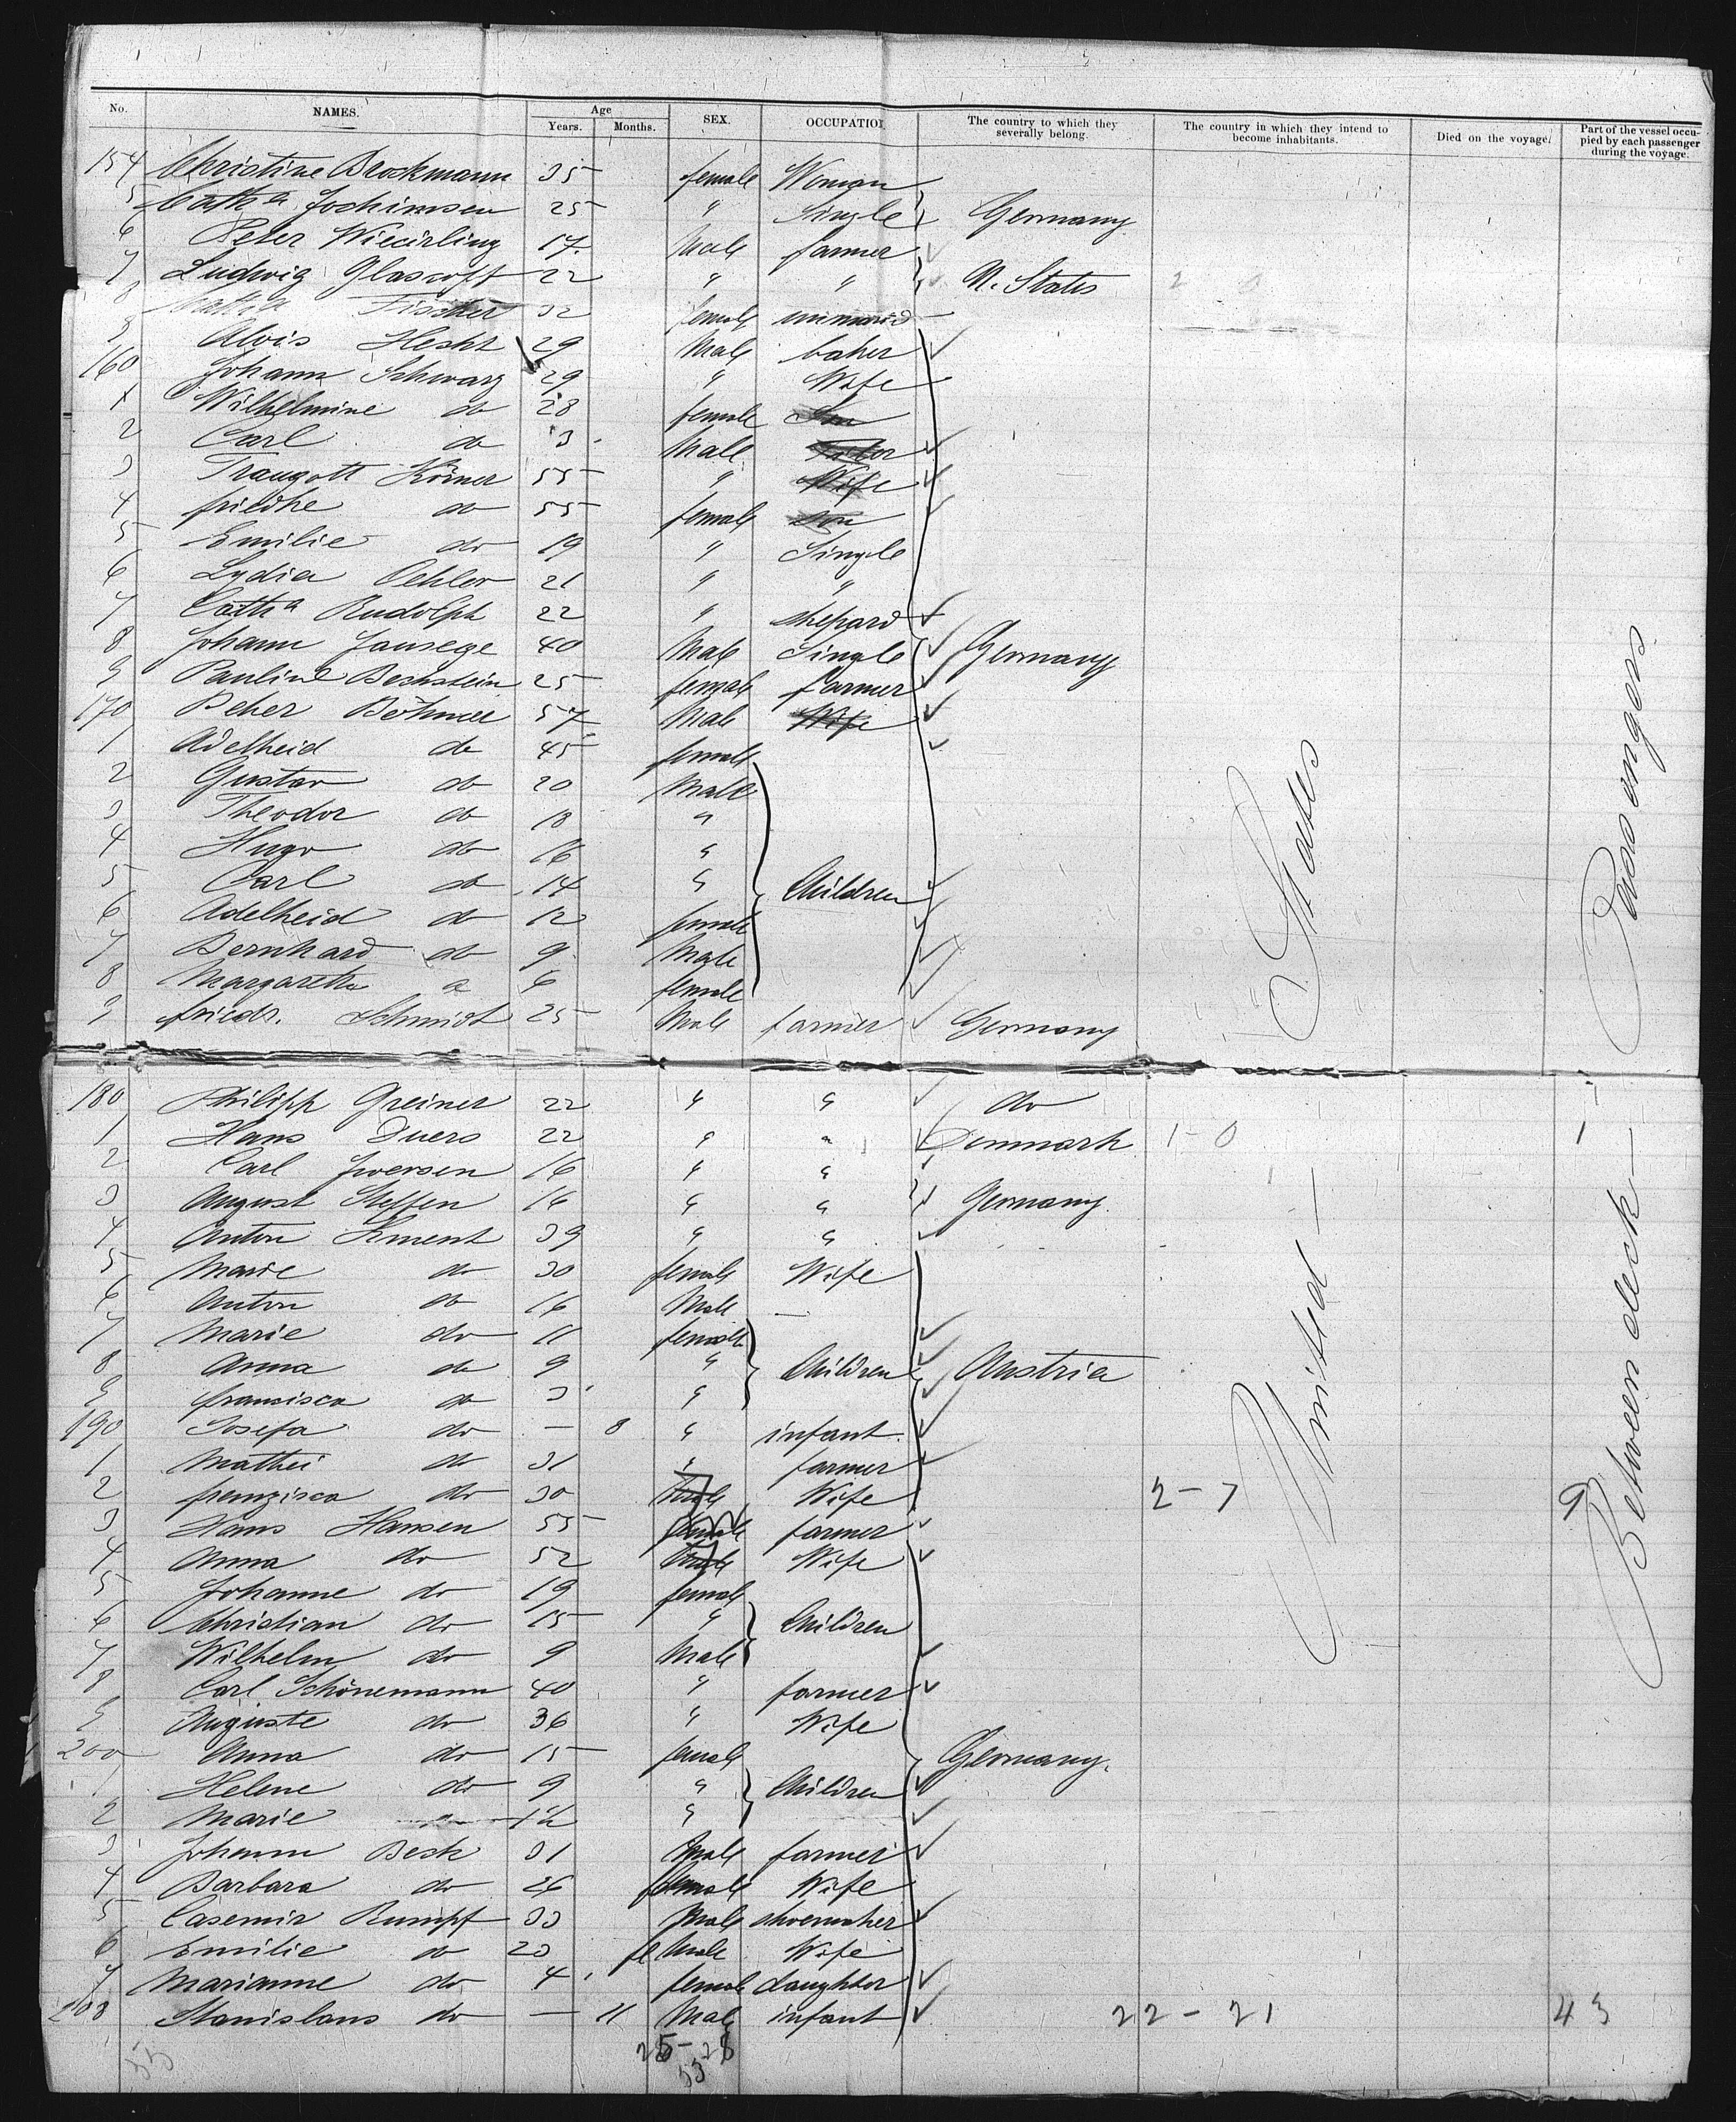 No. NAMES. Age Years. Months. SEX. OCCUPATION The country to which they severally belong. The country in which they intend to become inhabitants. Died on the voyage. Part of the vessel occupied by each passenger during the voyage.
154 Christine Brockmann 35 female Woman
5 Cath a Jochimsen 25 " Single Germany
6 Peter 17 Male farmer
7 Ludwig Glascoff 22 " " U. States
8 Cath a Fischer 32 female
9 Alois Hecht 29 Male baker
160 Johann Schwarz 29 " Wife
1 Wilhelmine do 28 female Son
2 Carl do 3 Male
3 Traugott Körner 55 " Wife
4 friedke do 55 female Son
5 Emilie do 19 " Single
6 Lydia Oehler 21 " "
7 Cath a Rudolph 22 " shepard
8 Johann Jausege 40 Male Single Germany
9 Pauline Bechstein 25 female farmer
170 Peter 57 Male Wife
1 Adelheid do 45 female
2 Gustav do 20 Male
3 Theodor do 18 "
4 Hugo do 16 "
5 Carl do 14 " Children
6 Adelheid do 12 female
7 Bernhard do 9 Male
8 Margaretha do 6 female
9 friedr. Schmidt 25 Male farmer Germany
180 Philipp Greiner 22 " " do
1 Hans Duers 22 " " Denmark 1-0 1
2 Carl Jwersen 16 " "
3 August Steffen 16 " " Germany
4 Anton Kment 39 " "
5 Marie do 30 female Wife
6 Anton do 16 Male —
7 Marie do 11 female
8 Anna do 9 " Children Austria
9 francisca do 3 "
190 Josefa do — 8 " infant
1 Mathei do 31 " farmer
2 franzisca do 30 Male Wife 2-7 9
3 Hans Hansen 55 female farmer
4 Anna do 52 Male Wife
5 Johanne do 19 female
6 Christian do 15 " Children
7 Wilhelm do 9 Male
8 Carl Schönemann 40 " farmer
9 Auguste do 36 " Wife
200 Anna do 15 female Germany.
1 Helene do 9 " Children
2 Marie do "
3 Johann Besk 31 Male farmer
4 Barbara do 26 female Wife
5 Casemir Rumpf 33 Male shoemaker
6 Emilie do 20 fe Male Wife
7 Marianne do 4 female daughter
208 Stanislaus do — 11 Male infant 22-21 43
25-28
53
United States
Between deck Passengers